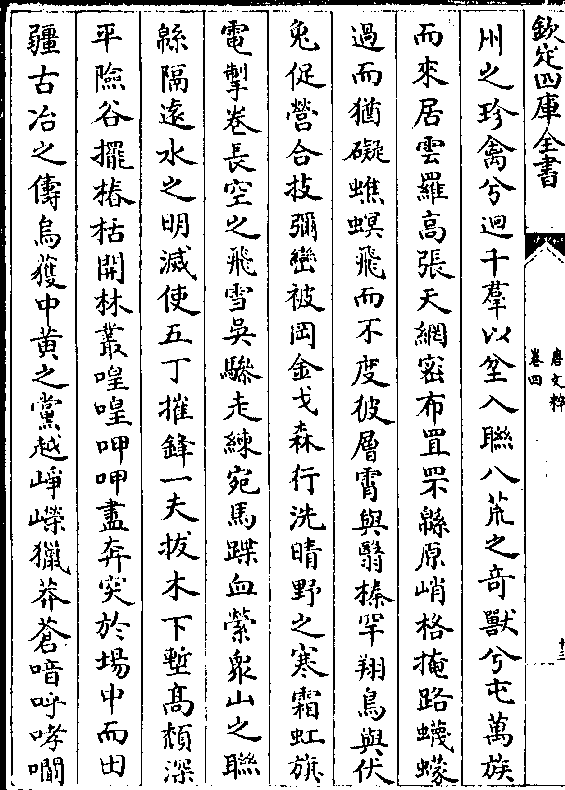 欽定四庫全書
唐文粹
卷四
十三
州之珍禽兮迴千羣以坌入聯八荒之竒獸兮屯萬族
而來居雲羅髙張天網密布罝罘緜原峭格掩路蠛蠓
過而猶礙蟭螟飛而不度彼層霄與翳榛罕翔鳥與伏
兔促營合技彌巒被岡金戈森行洗晴野之寒霜虹旗
電掣卷長空之飛雪吳驂走練宛馬蹀血縈衆山之聯
緜隔逺水之明滅使五丁摧鋒一夫拔木下塹髙頽深
平險谷擺樁栝開林叢喤喤呷呷盡奔突於塲中而田
疆古冶之儔烏獲中黄之黨越崢嶸獵莽蒼喑呼哮㘚